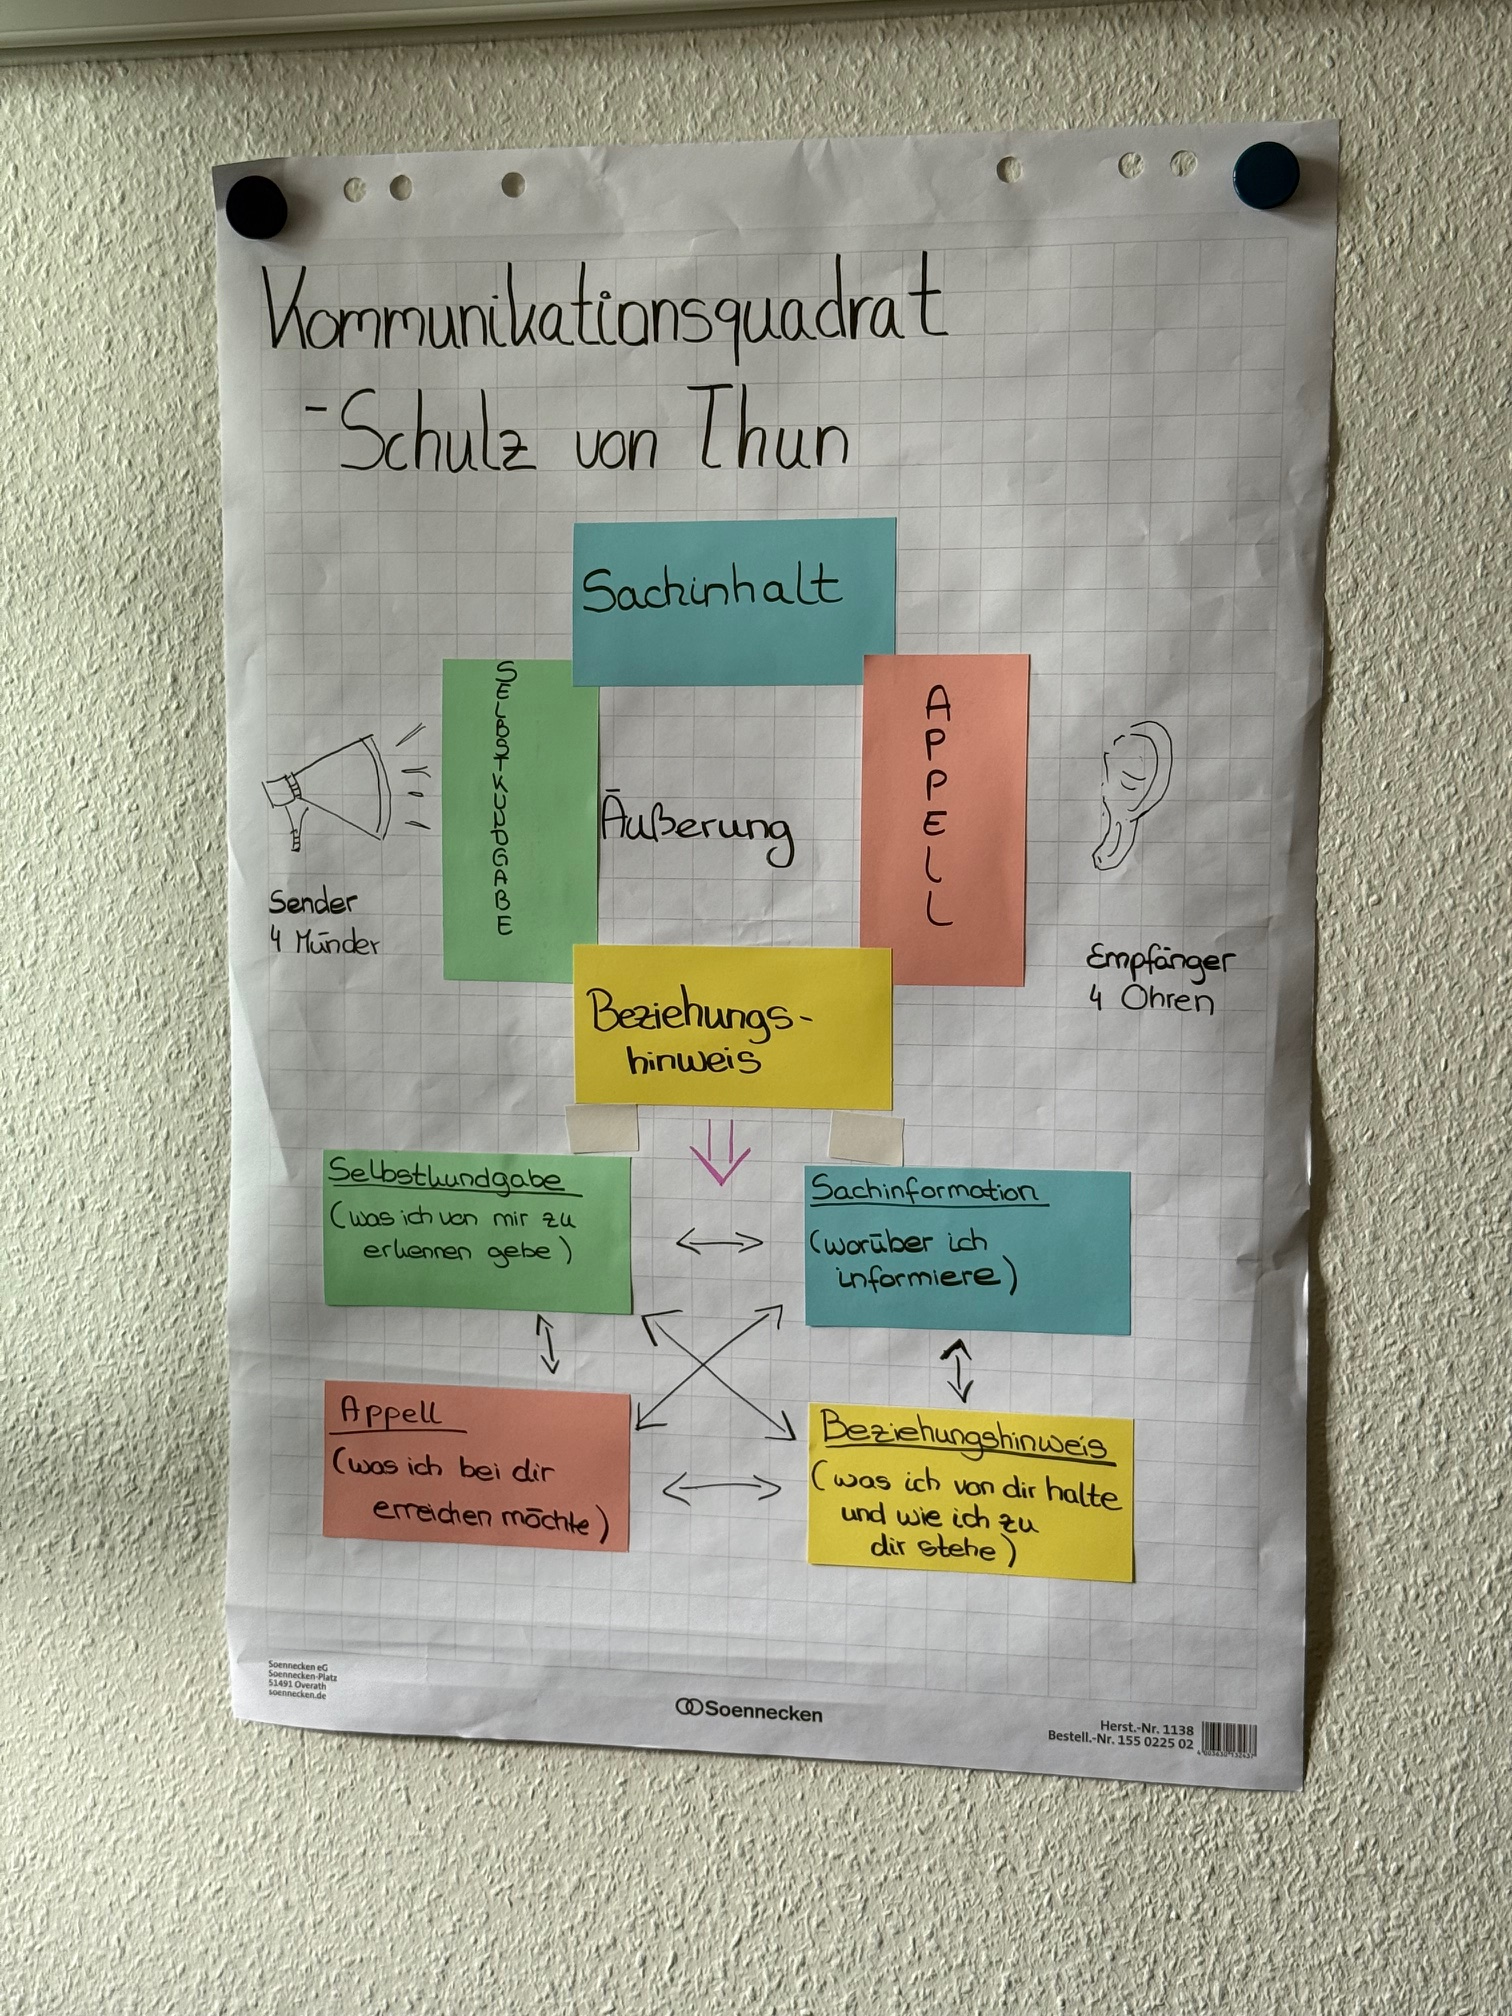 Kommunikationsquadrat
- Schulz von Thun
Sachinhalt
SELBSTKUDGABE
Äußerung
APPELL
Sender
4 Münder
Empfänger
4 Ohren
Beziehungs-
hinweis
Selbstkundgabe
(was ich von mir zu
erkennen gebe)
Sachinformation
(worüber ich
informiere)
Appell
(was ich bei dir
erreichen möchte)
Beziehungshinweis
(was ich von dir halte
und wie ich zu
dir stehe)
Soennecken eG
Soennecken-Platz
51491 Overath
soennecken.de
Soennecken
Herst.-Nr. 1138
Bestell.-Nr. 155 0225 02